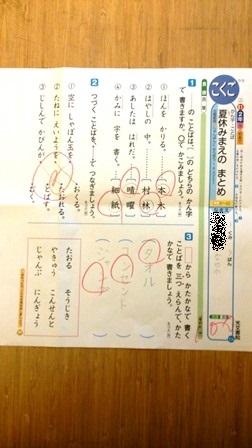 こくご
夏休みまえの まとめ
1 の ことばは、( )の どちらの かん字
で 書きますか。○で かこみましょう。
① ほんを かりる。 本 木
② はやしの 中。 村 林
③ あしたは はれだ。 晴 曜
④ かみに 字を 書く。 細 紙
2 つづく ことばを、・－・で つなぎましょう。
① 空に しゃぼん玉を
② たねに えいようを
③ じしんで かびんが
おくる。
たおれる。
とばす。
3 から かたかなで 書く
ことばを 三つ えらんで、かた
かなで 書きましょう。
タオル
コンセント
たおる そうじき
やきゅう こんせんと
じゃんぷ にんぎょう